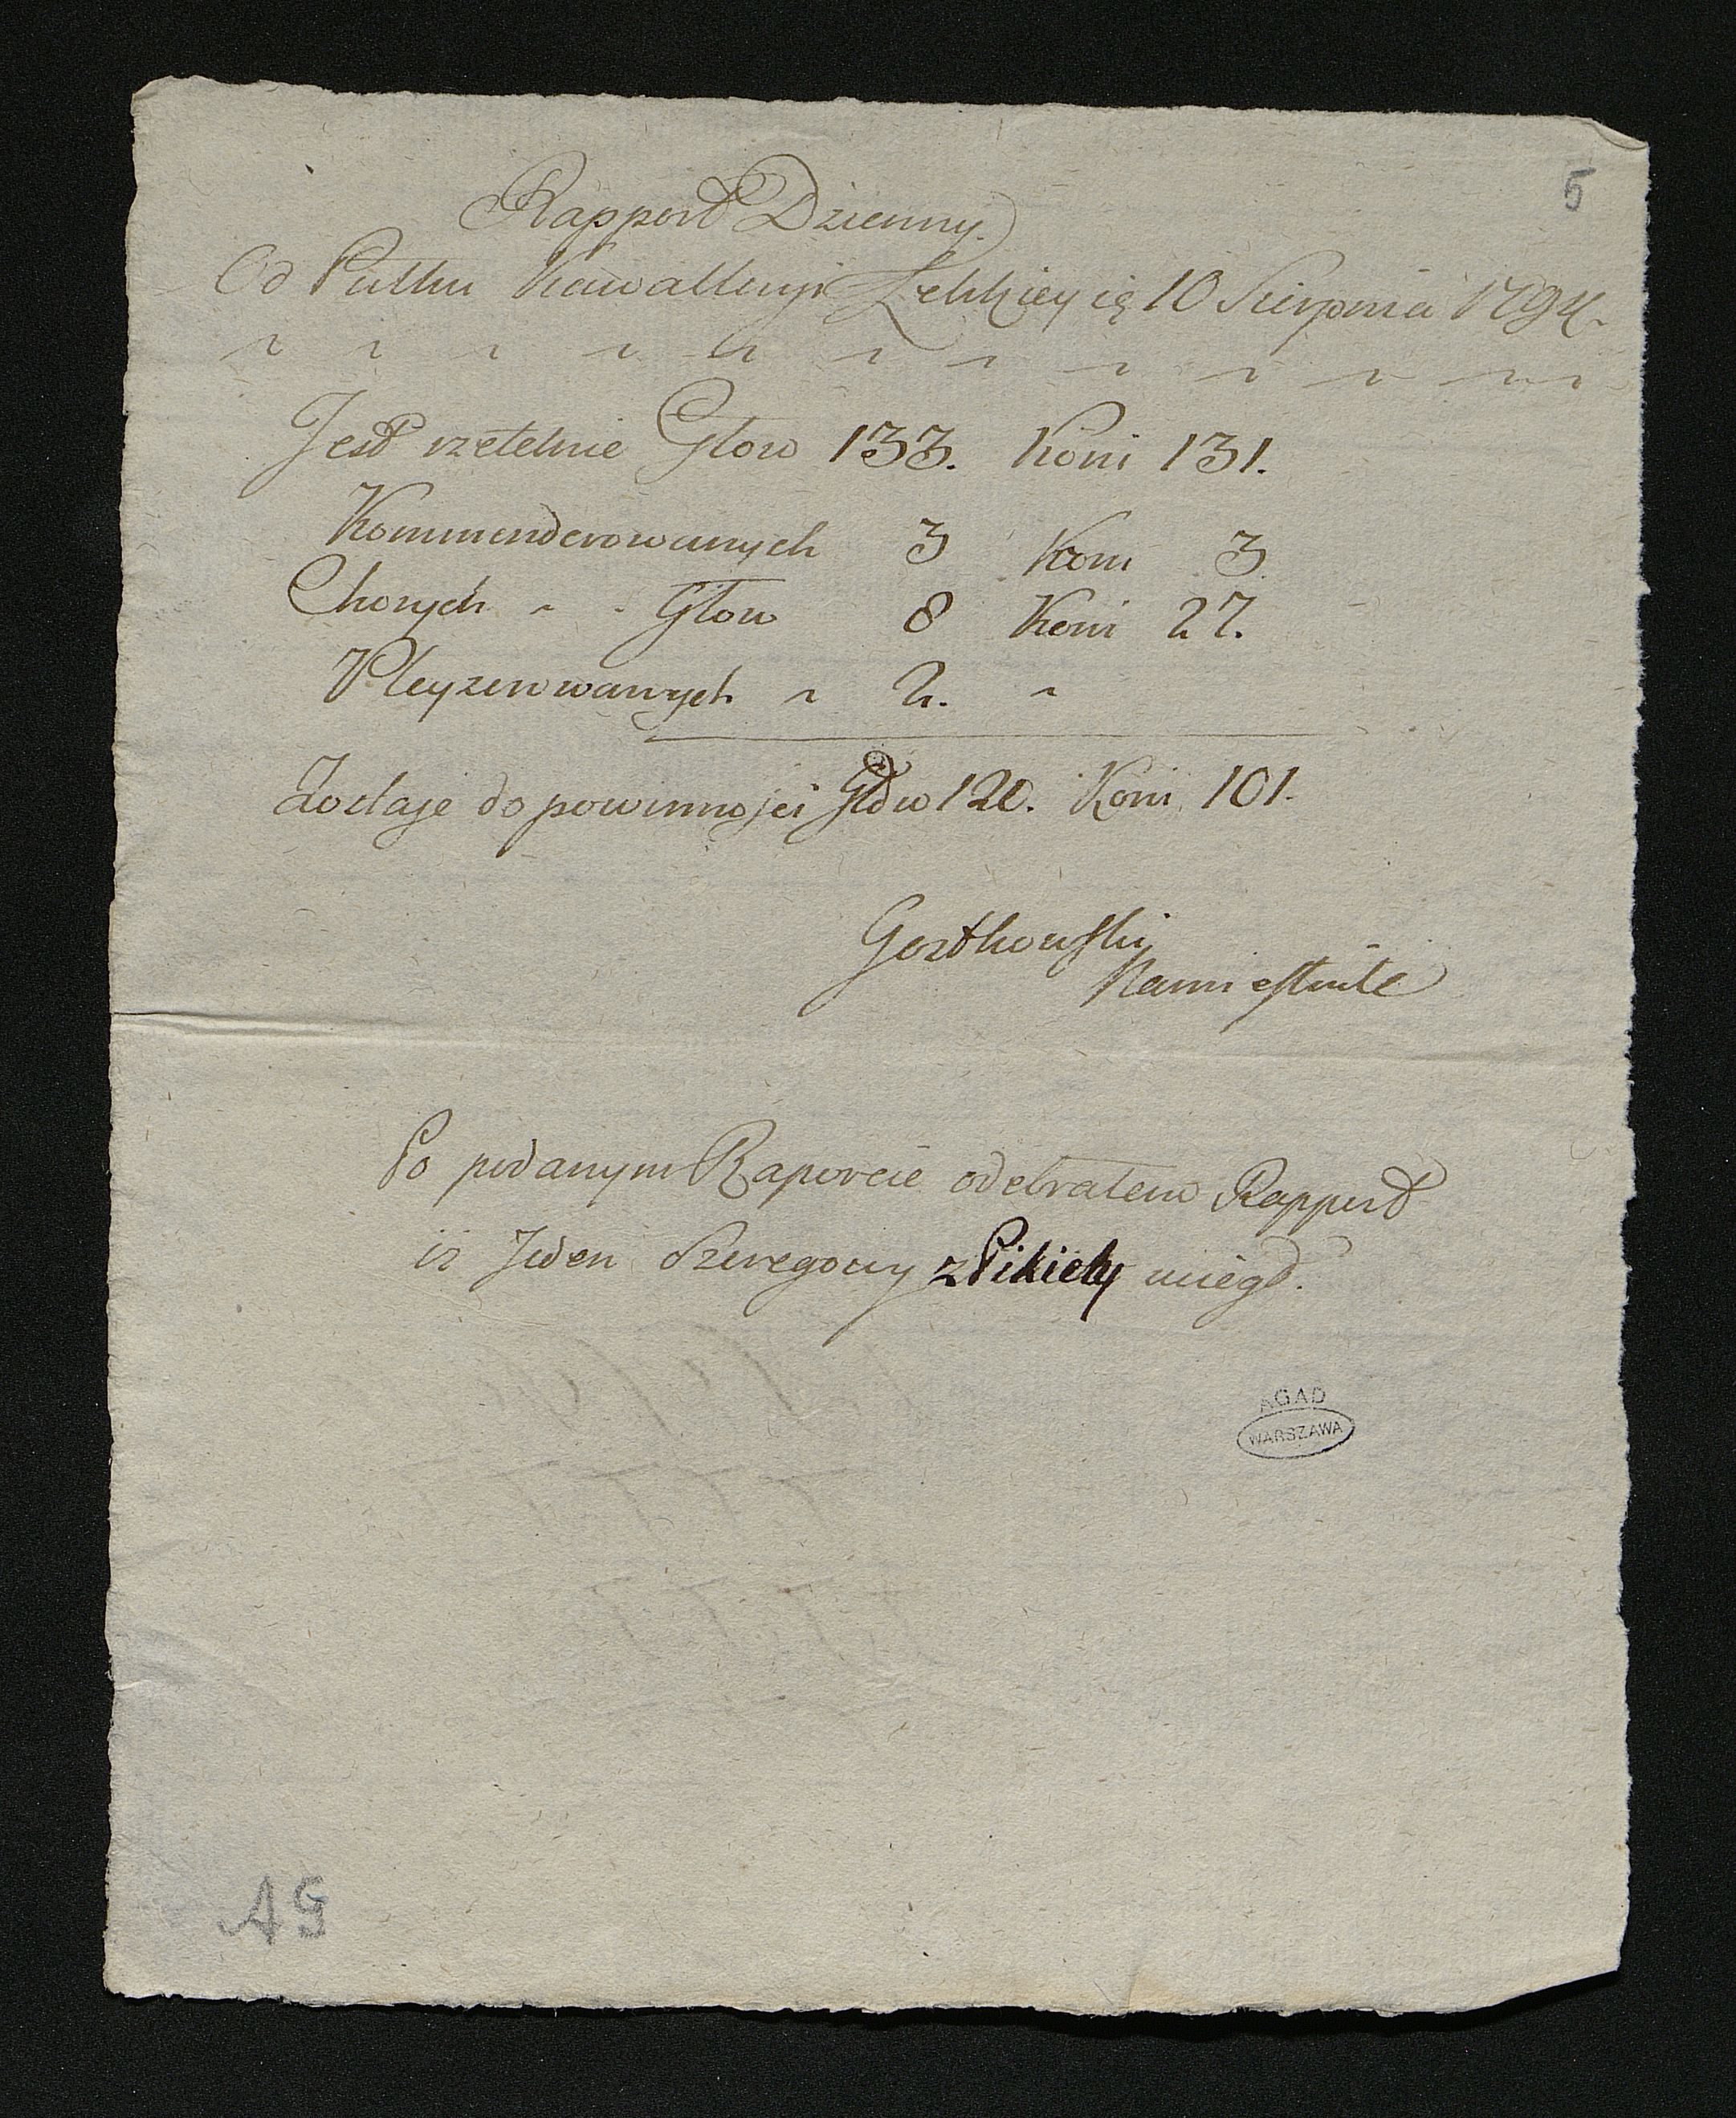 5
Rapport Dzienny.
Od Pułku Kawalleryi Lekkiey 10 Sierpnia 1794.
Jest rzetelnie Głow 133. Koni 131.
Kommenderowanych 3 Koni 3
Chorych " " Głow 8 Koni 27.
Pleyzerowanych " 2. "
Zostaje do powinnosci Głow 120. Koni 101.
Gostkowski
Namiestnik
Po podanym Raporcie odebrałem Rapport
iż Jeden Szeregowy z Pikiety uciegł.
AGAD
WARSZAWA
AG